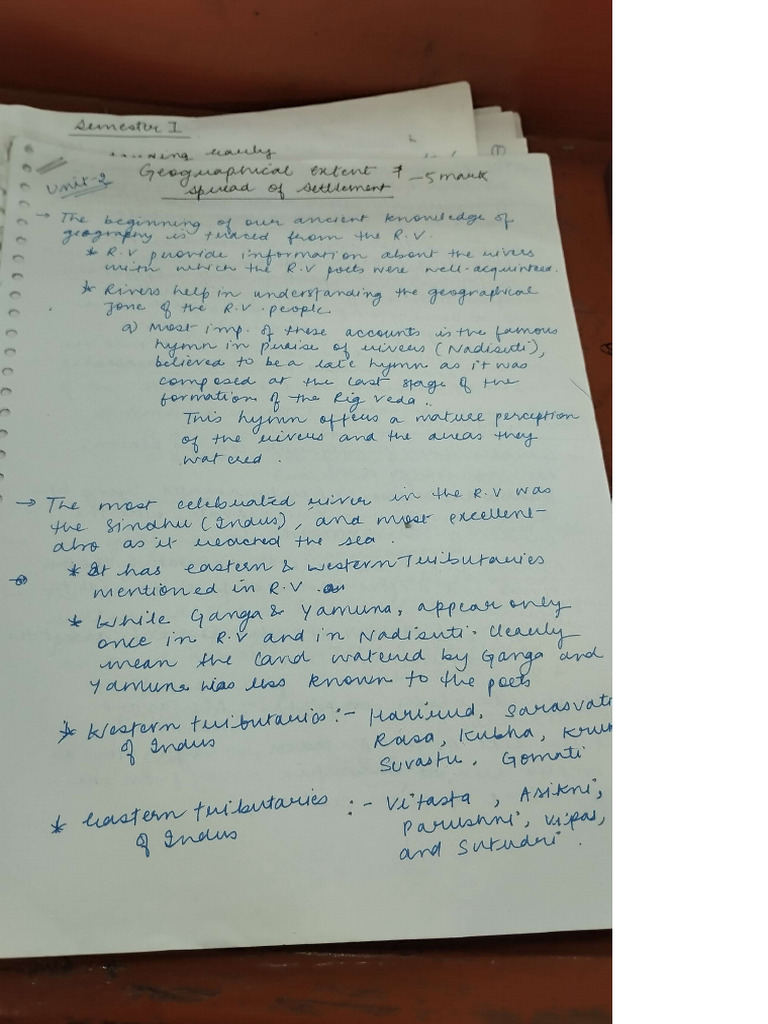 Semester I
Unit-2 Geographical extent & – 5 mark
spread of settlement
→ The beginning of our ancient knowledge of
geography is traced from the R.V.
* R.V provide information about the rivers
with which the R.V poets were well-acquinted.
* Rivers help in understanding the geographical
zone of the R.V. people.
a) Most imp. of these accounts is the famous
hymn in praise of rivers (Nadisuti),
believed to be a late hymn as it was
composed at the last stage of the
formation of the Rig Veda.
This hymn offers a mature perception
of the rivers and the areas they
watered.
→ The most celebrated river in the R.V was
the Sindhu (Indus), and most excellent
also as it reached the sea.
* It has eastern & western Tributaries
mentioned in R.V.
* While Ganga & Yamuna, appear only
once in R.V and in Nadisuti. Clearly
mean the land watered by Ganga and
Yamuna was less known to the poets
* Western tributaries :- Harirud, Sarasvati
of Indus Rasa, Kubha,
Suvastu, Gomati
* Eastern tributaries :- Vitasta, Asikni,
of Indus Parushni, Vipas,
and Sutudri.